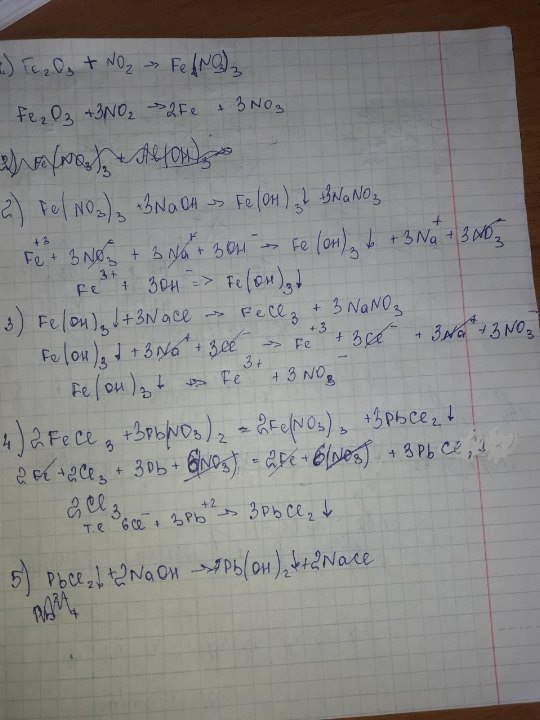 1) Fe₂O₃ + NO₂ → Fe(NO₃)₃
Fe₂O₃ + 3NO₂ → 2Fe + 3NO₃
2) Fe(NO₃)₃ + Al(OH)₃
2) Fe(NO₃)₃ + 3NaOH → Fe(OH)₃↓ + 3NaNO₃
Fe⁺³ + 3NO₃⁻ + 3Na⁺ + 3OH⁻ → Fe(OH)₃↓ + 3Na⁺ + 3NO₃⁻
Fe³⁺ + 3OH⁻ => Fe(OH)₃↓
3) Fe(OH)₃↓ + 3NaCl → FeCl₃ + 3NaNO₃
Fe(OH)₃↓ + 3Na⁺ + 3Cl⁻ → Fe⁺³ + 3Cl⁻ + 3Na⁺ + 3NO₃⁻
Fe(OH)₃↓ → Fe³⁺ + 3NO₃⁻
4) 2FeCl₃ + 3Pb(NO₃)₂ = 2Fe(NO₃)₃ + 3PbCl₂↓
2Fe + 2Cl₃ + 3Pb + 6(NO₃) = 2Fe + 6(NO₃) + 3PbCl₂↓
2Cl₃
т.е 6Cl⁻ + 3Pb⁺² → 3PbCl₂↓
5) PbCl₂↓ + 2NaOH → Pb(OH)₂↓ + 2NaCl